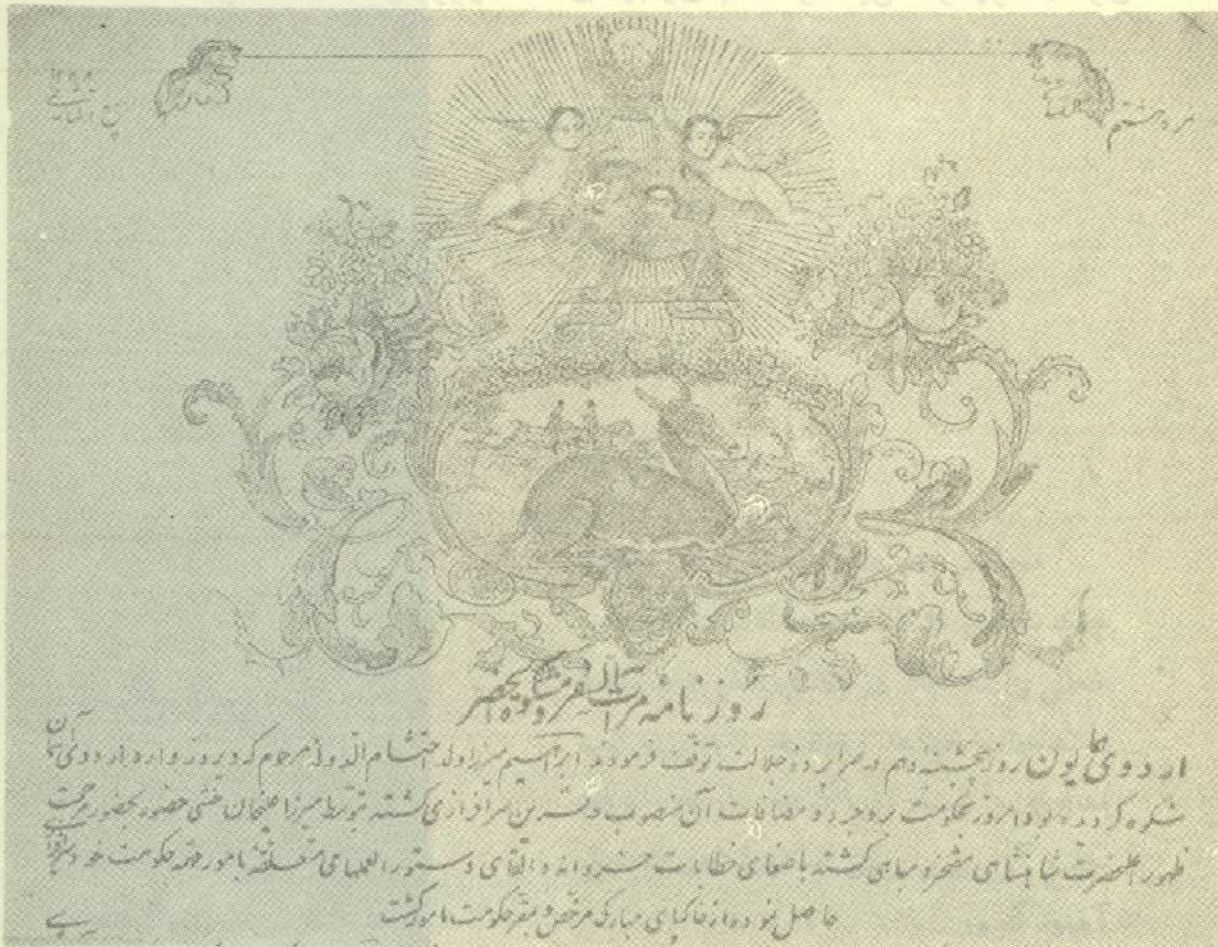 نمره هشتم
۱۲۸۸
روزنامه مرآت السفر و مشکوة الحضر
اردوی همایون روز پنجشنبه دهم در سراپرده جلالت توقف فرمودند ابراهیم میرزا ولد احتشام الدوله مرحوم که دیروز وارد اردوی
شکوه کردیده بود امروز بحکومت بروجرد و مضافات آن منصوب و قرین سرافرازی گشتند بتوسط میرزا علیخان منشی حضور بحضور مرحمت
ظهور اعلیحضرت شاهنشاهی مفتخر و مباهی گشتند باصغای خطابات خسروانه و القای دستورالعملهای متعلقه بامور حکومت خود
حاصل نموده از خاکپای مبارک مرخص و بمقر حکومت مامور گشت